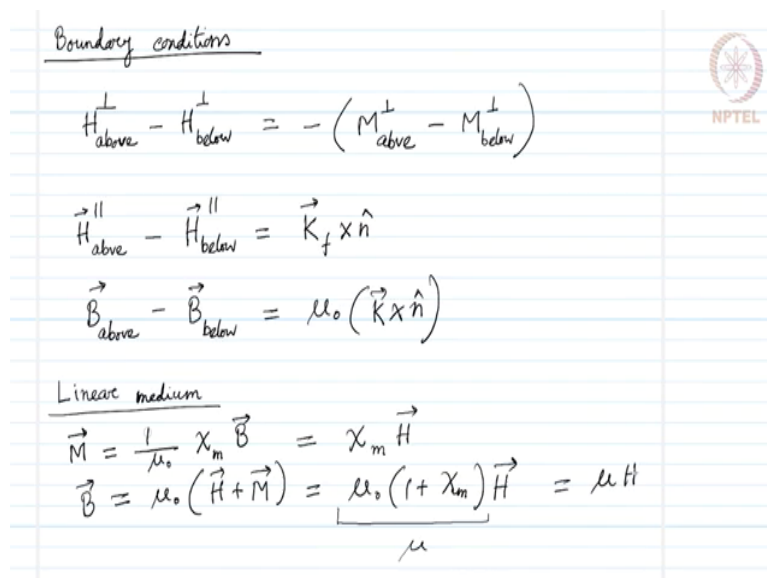 Boundary conditions
NPTEL
H⊥above − H⊥below = − (M⊥above − M⊥below)
H⃗∥abve − H⃗∥below = K⃗f × n̂
B⃗above − B⃗below = μ₀ (K⃗ × n̂)
Linear medium
M⃗ = 1/μ₀ χm B⃗ = χm H⃗
B⃗ = μ₀ (H⃗ + M⃗) = μ₀ (1 + χm) H⃗ = μ H
μ